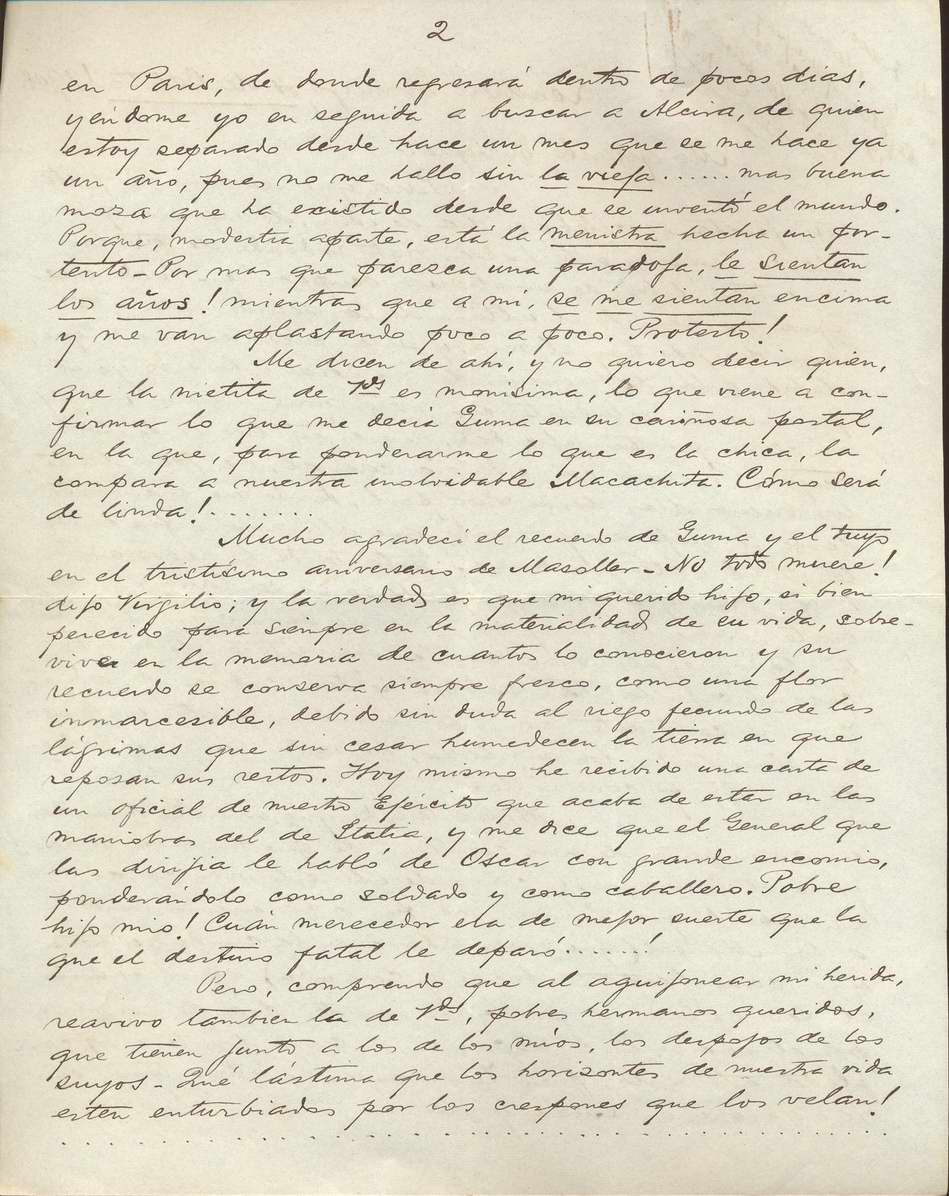 2
en Paris, de donde regresará dentro de pocos dias,
yéndome yo en seguida a buscar a Alcira, de quien
estoy separado desde hace un mes que se me hace ya
un año, pues no me hallo sin la vieja ...... mas buena
moza que ha existido desde que se inventó el mundo.
Porque, modestia aparte, está la menistra hecha un por-
tento - Por mas que paresca una paradoja, le sientan
los años! mientras que a mí, se me sientan encima
y me van aplastando poco a poco. Protesto!
Me dicen de ahí, y no quiero decir quien,
que la nietita de Vds es monísima, lo que viene a con-
firmar lo que me decia Guma en su cariñosa postal,
en la que, para ponderarme lo que es la chica, la
compara a nuestra inolvidable Macachita. Cómo será
de linda! .......
Mucho agradecí el recuerdo de Guma y el tuyo
en el tristísimo aniversario de Masoller - No todo muere!
dijo Virgilio; y la verdad es que mi querido hijo, si bien
perecido para siempre en la materialidad de su vida, sobre-
vive en la memoria de cuantos lo conocieron y su
recuerdo se conserva siempre fresco, como una flor
inmarcesible, debido sin duda al riego fecundo de las
lágrimas que sin cesar humedecen la tierra en que
reposan sus restos. Hoy mismo he recibido una carta de
un oficial de nuestro Ejército que acaba de estar en las
maniobras del de Italia, y me dice que el General que
las dirijia le habló de Oscar con grande encomio,
ponderándolo como soldado y como caballero. Pobre
hijo mio! Cuán merecedor era de mejor suerte que la
que el destino fatal le deparó.......!
Pero, comprendo que al aguijonear mi herida,
reavivo tambien la de Vds, pobres hermanos queridos,
que tienen junto a los de los míos, los despojos de los
suyos - Qué lástima que los horisontes de nuestra vida
esten enturbiados por los crespones que los velan!
. . . . . . . . . . . . . . . . . . . . . . . . . . . . . .